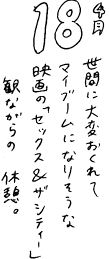 18日目
世間に大変おくれて
マイブームになりそうな
映画の「セックス&ザ・シティー」
観ながらの
休憩。